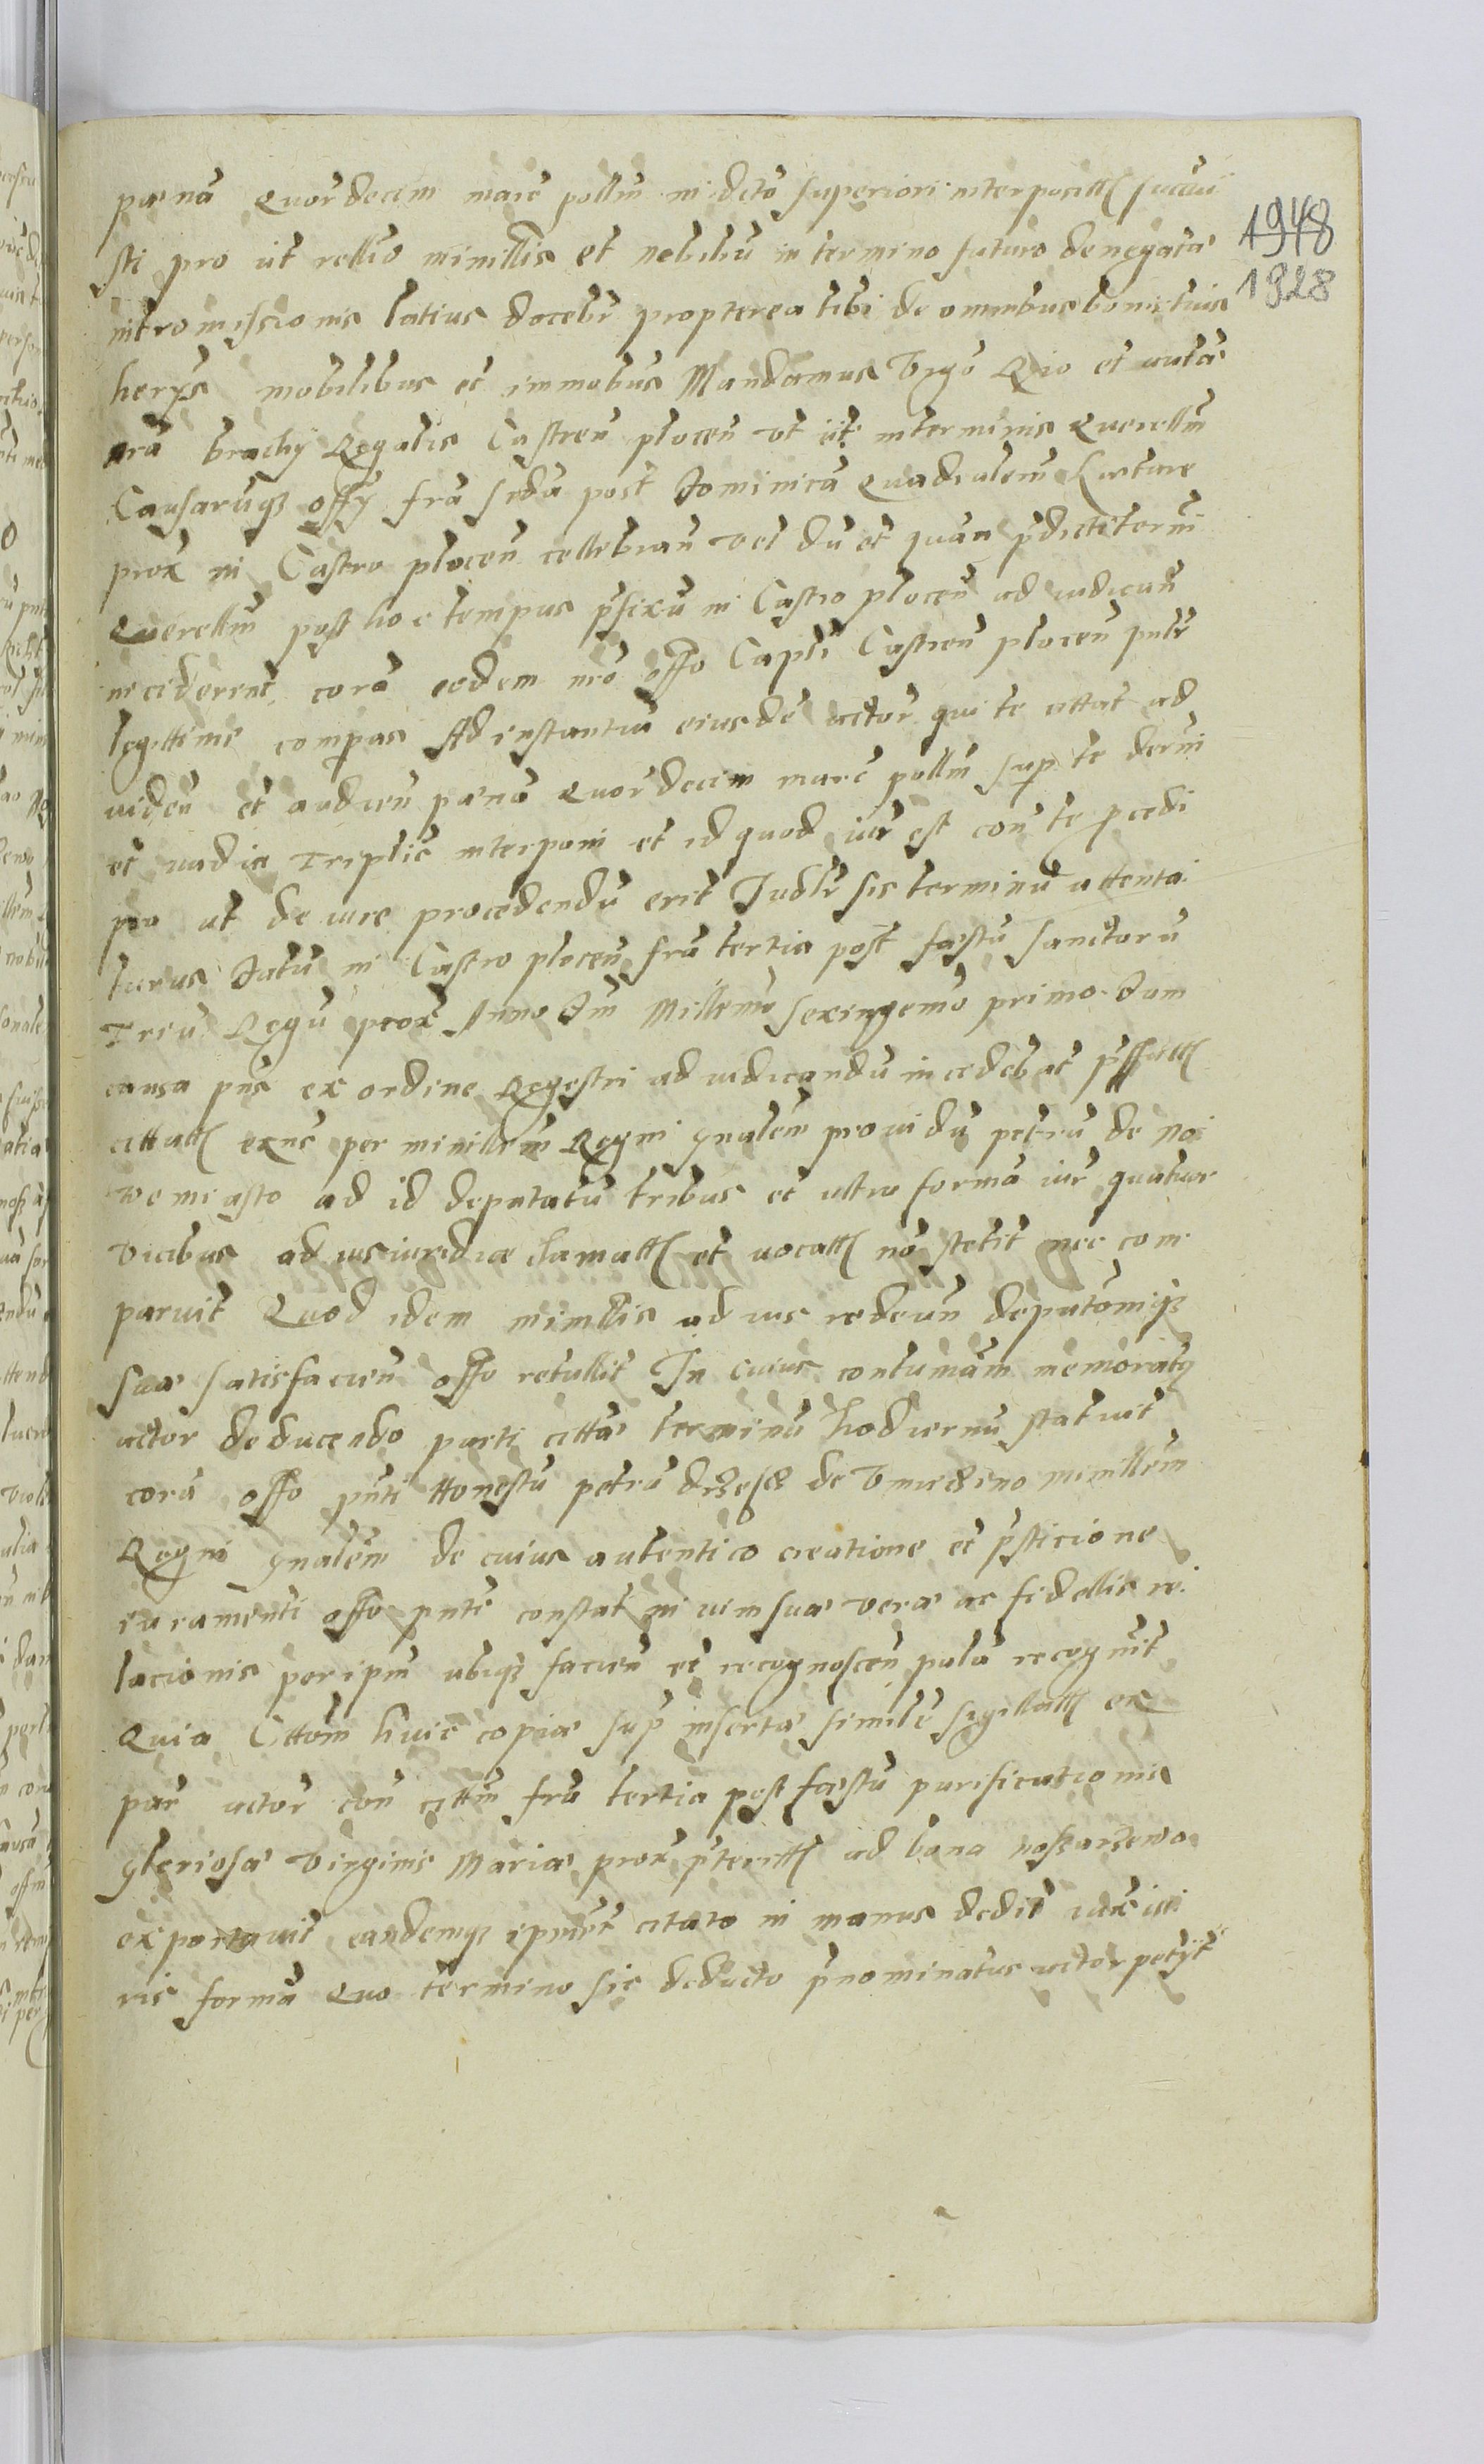 pœnã Quordecim marc pollm in dcto superiori interposittę succui
1948
sti pro ut rellio minillis et nobiliũ in termino futuro denegatæ
1928
intromissionis latius docebr propterea tibi de omnibus bonis tuis
herys mobilibus et immobus Mandamus Vigo Qio et autæ
nrã brachy Regalis Castren plocen Vt iit in terminis Querellm
Causaruqz offy frã scdã post Dominicã Quadralem Inuocare
prox in Castro plocen cellebran vel dũ et quãn pdicti termi
Querellm post hoc tempus pfixũ in Castro plocen ad iudicañ
inciderent corã eodem nro offo Capli Castren plocen pnlr
legittime compas Ad instantiã eiusdẽ actor qui te cittat ad
uiden et audien pœnã Quordecim marc pollm sup te derni
et uadia Triplic interponi et id quod iur est con te pcedi
pro ut de iure procedendũ erit Judlr sis terminũ attenta
turus Datũ in Castro plocen frã tertia post fæstũ sanctorũ
Triũ Regũ prox Anno Dni Millemo sexingemo primo Dum
causa pns ex ordine Regestri ad iudicandũ incedebat pffattę
cittattę exnc per minillrem Regni gnalem prouidũ petrũ de No
wemiasto ad id deputatũ tribus et ultro formã iur quatuor
vicibus ad ius iuridice clamattę et uocattę nõ stetit nec com
paruit Quod idem minillis ad ius redeun deputõniqz
suæ satisfacien offo retullit In cuius contumãm memoratę
actor deducendo parti cittæ terminũ hodiernũ statuit
corã offo pnti Honestũ petrũ drzesz de Vmiezino minillem
Regni gnalem de cuius autentico creatione et psticione
iuramenti offo pnti constat in uim suæ veræ ac fidellis re
lacionis per ipm ubiqz facien et recognoscen palã recognit
Quia Cittõm huic copiæ sup insertæ similẽ sygillattę ex
par actor con cittm frã tertia post fæstũ purificationis
gloriosæ Virginis Mariæ prox pterittę ad bona noskarzewo
exportauit eandemqz ipmet citato in manus dedit iux iu
ris formã Quo termino sic deducto pnominatus actor petyt